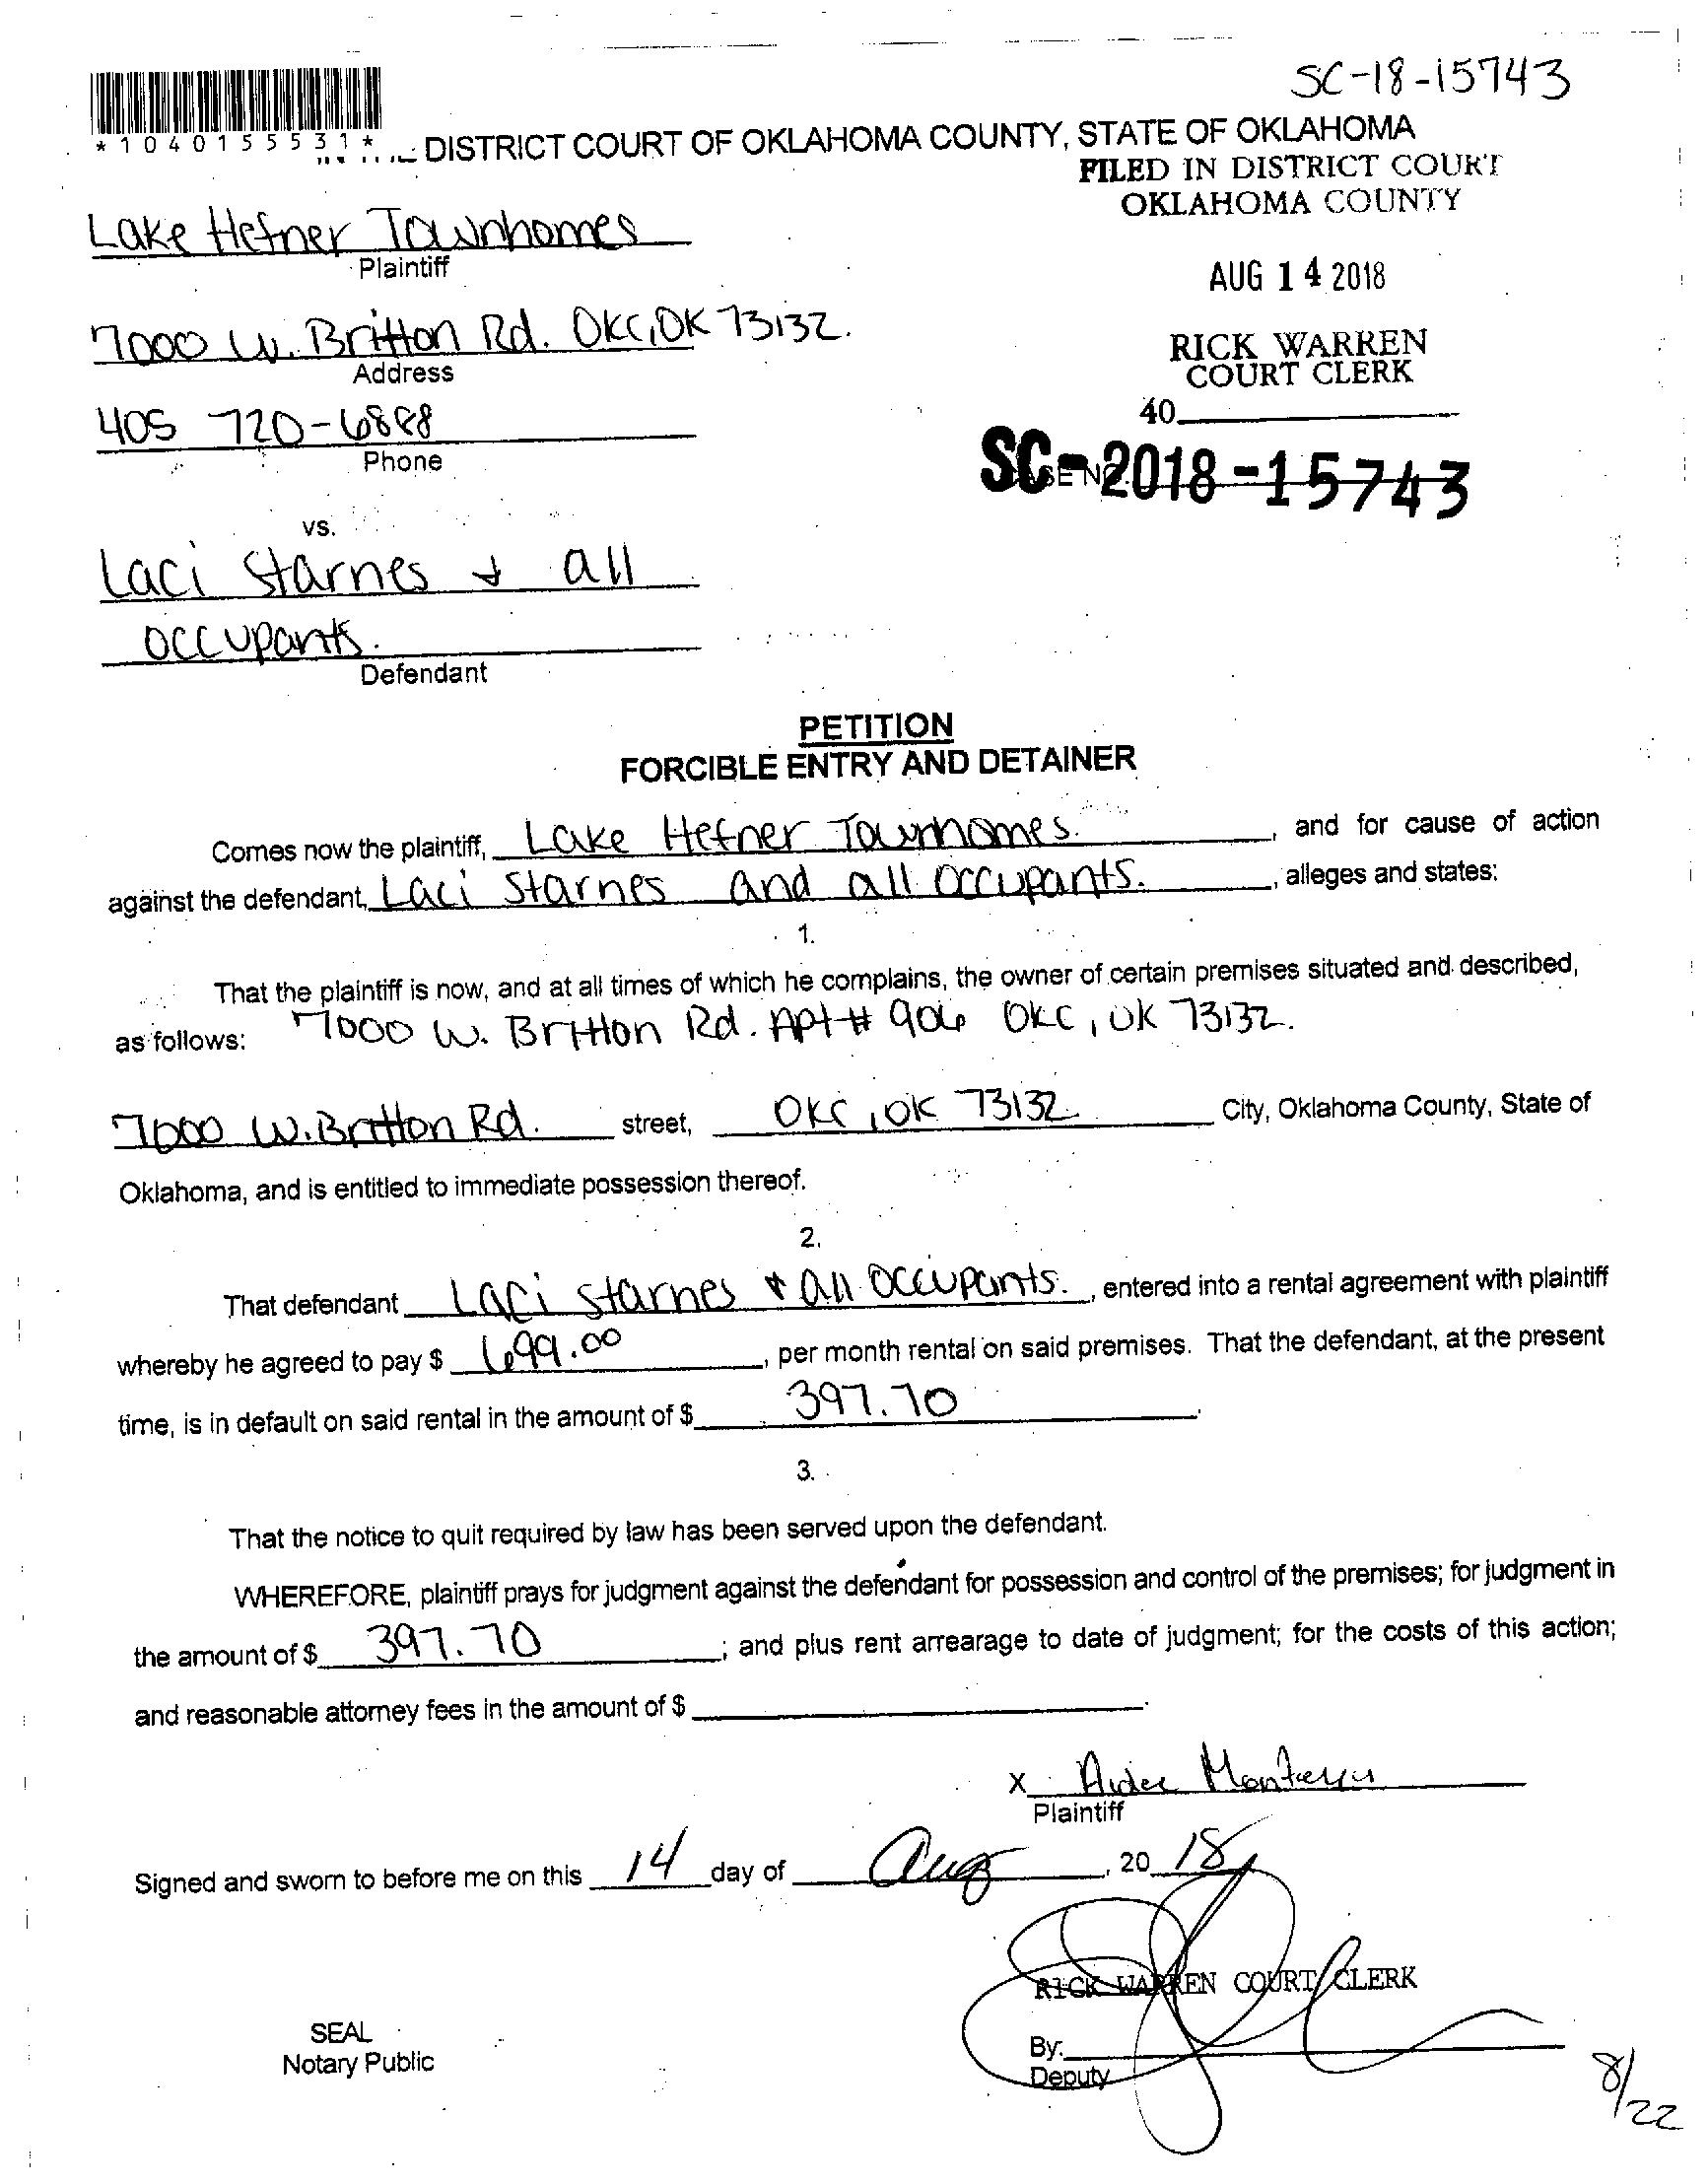 SC-18-15743
*1040155531*
DISTRICT COURT OF OKLAHOMA COUNTY, STATE OF OKLAHOMA
FILED IN DISTRICT COURT
OKLAHOMA COUNTY
Lake Hefner Townhomes
Plaintiff
AUG 14 2018
7000 W. Britton Rd. OKC, OK 73132.
Address
RICK WARREN
COURT CLERK
405 720-6888
Phone
40
SC-2018-15743
vs.
Laci Starnes & all
occupants.
Defendant
PETITION
FORCIBLE ENTRY AND DETAINER
Comes now the plaintiff, Lake Hefner Townhomes. , and for cause of action
against the defendant, Laci Starnes and all occupants. , alleges and states:
1.
That the plaintiff is now, and at all times of which he complains, the owner of certain premises situated and described,
as follows: 7000 W. Britton Rd. Apt # 906 OKC, OK 73132.
7000 W. Britton Rd. street, OKC, OK 73132 City, Oklahoma County, State of
Oklahoma, and is entitled to immediate possession thereof.
2.
That defendant Laci Starnes & all occupants. , entered into a rental agreement with plaintiff
whereby he agreed to pay $ 699.00 , per month rental on said premises. That the defendant, at the present
time, is in default on said rental in the amount of $ 397.70 .
3.
That the notice to quit required by law has been served upon the defendant.
WHEREFORE, plaintiff prays for judgment against the defendant for possession and control of the premises; for judgment in
the amount of $ 397.70 ; and plus rent arrearage to date of judgment; for the costs of this action;
and reasonable attorney fees in the amount of $ .
X
Plaintiff
Signed and sworn to before me on this 14 day of Aug , 20 18
RICK WARREN COURT CLERK
SEAL
Notary Public
By:
Deputy
8/22